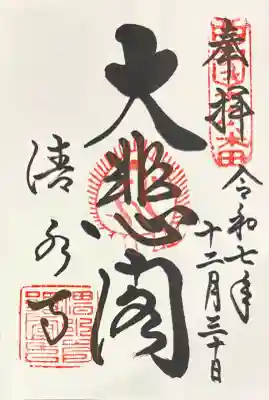 奉拝
令和七年
十二月三十日
大悲閣
清水寺